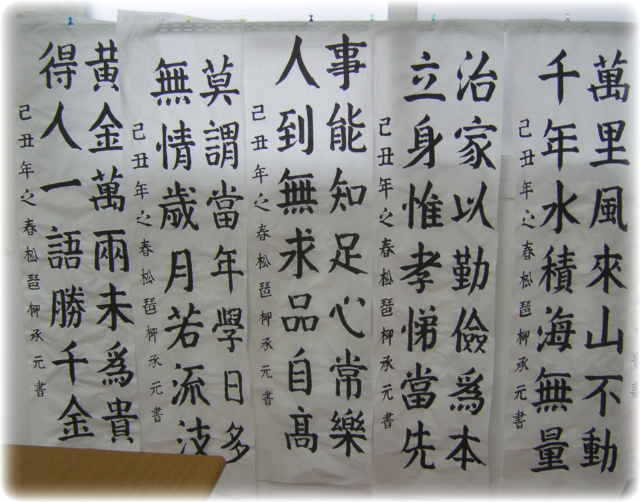 萬里風來山不動
千年水積海無量
己丑年之春松琶柳承元書
治家以勤儉爲本
立身惟孝悌當先
己丑年之春松琶柳承元書
事能知足心常樂
人到無求品自高
己丑年之春松琶柳承元書
莫謂當年學日多
無情歲月若流波
己丑年之春松琶柳承元書
黃金萬兩未爲貴
得人一語勝千金
己丑年之春松琶柳承元書